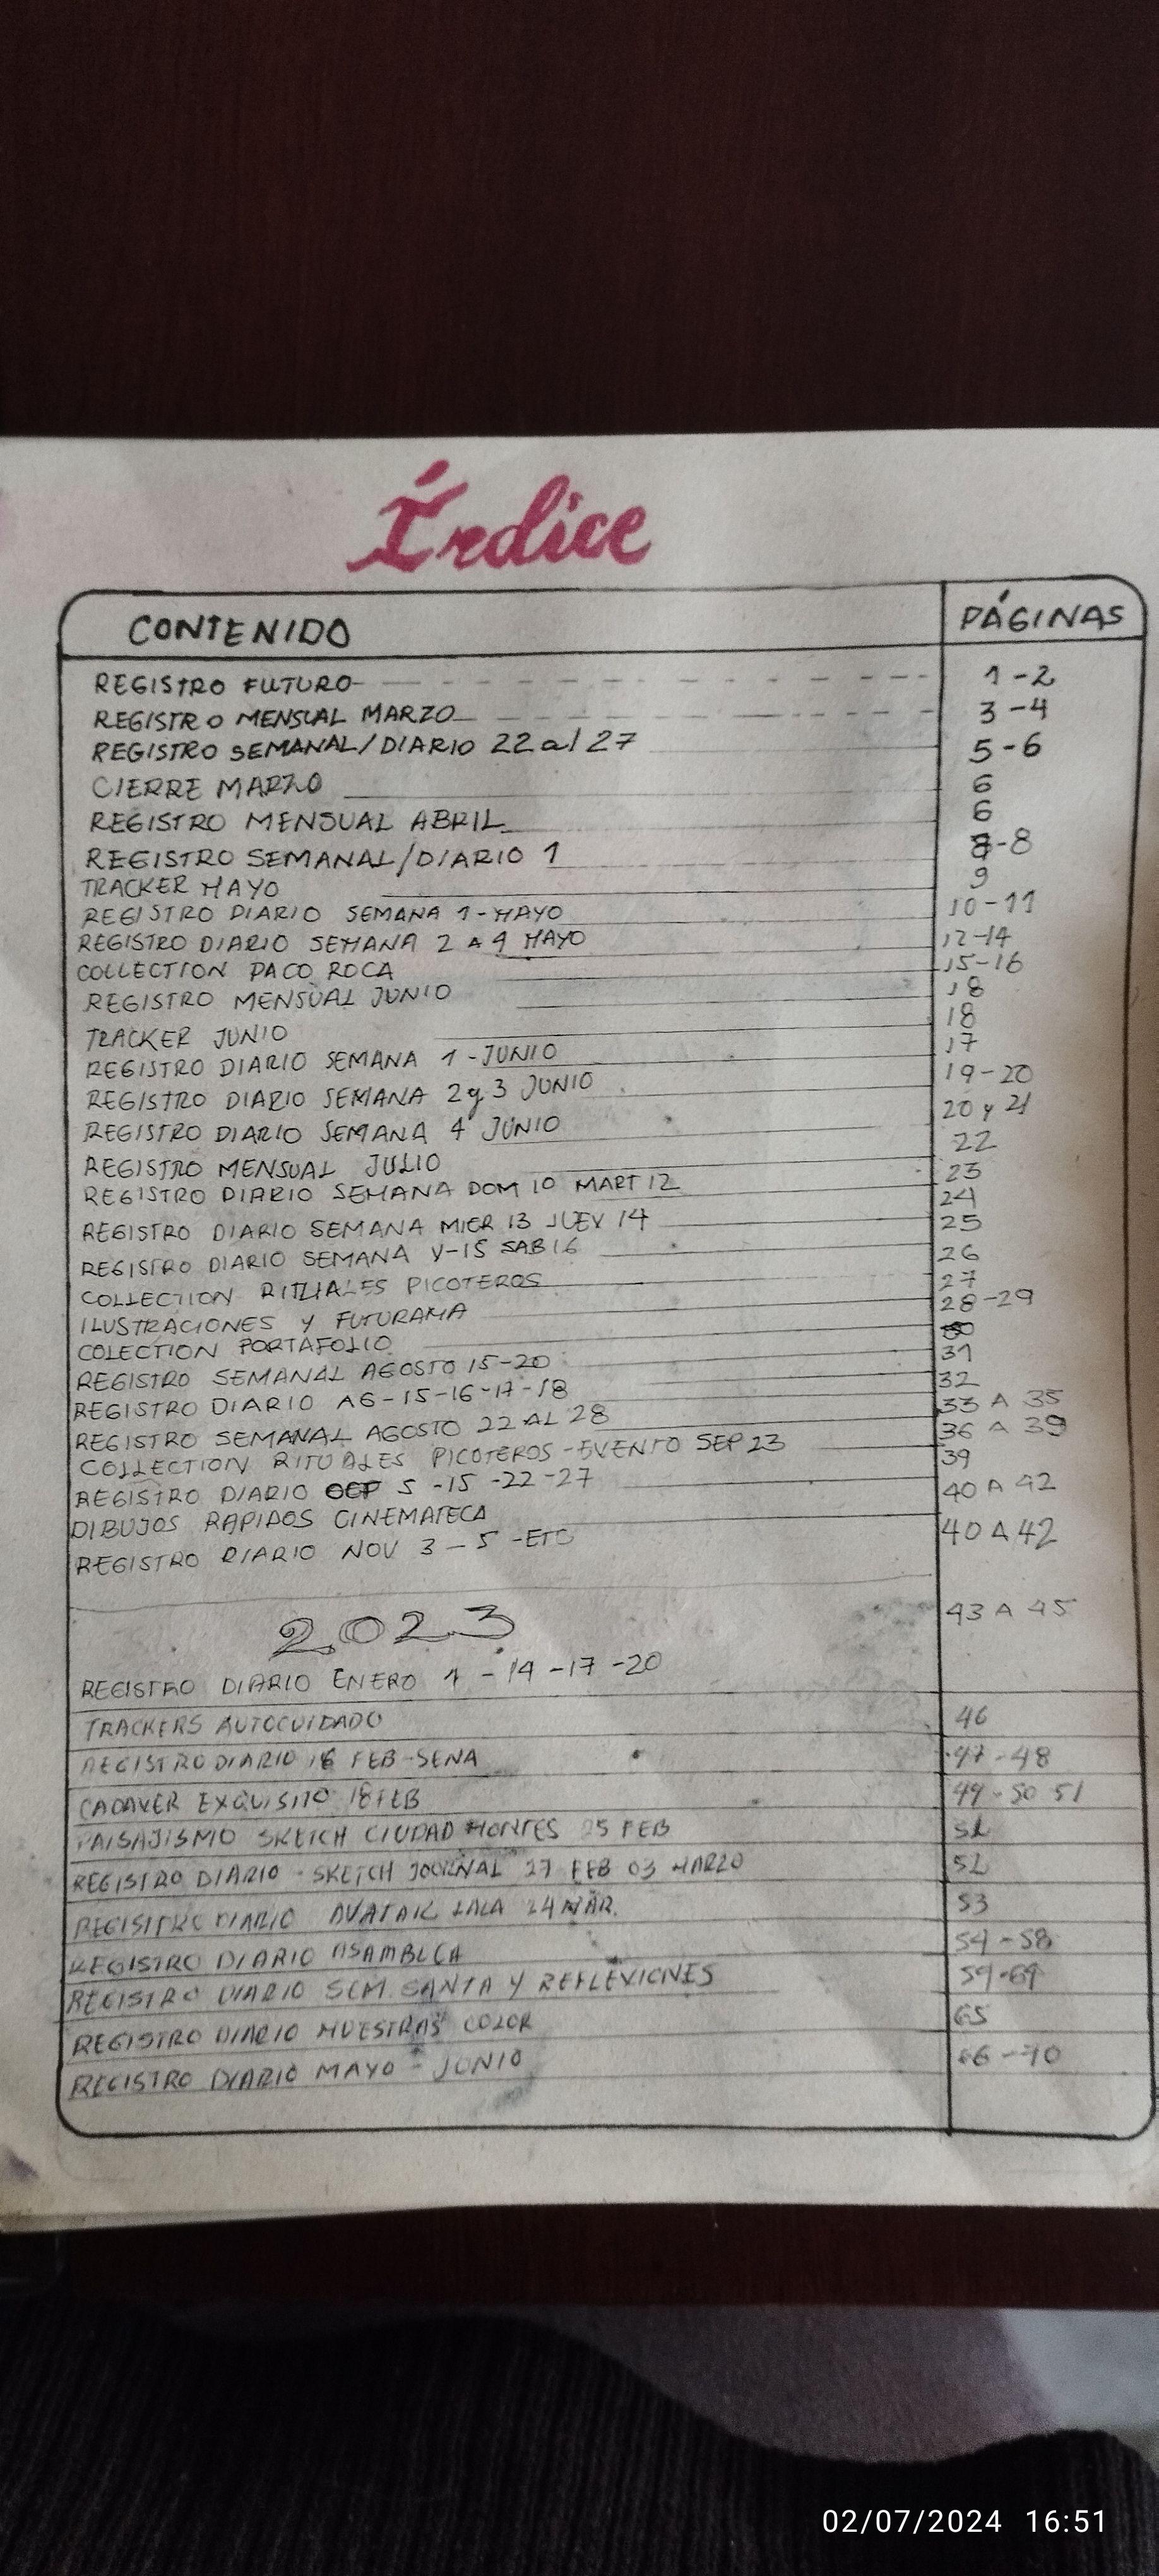 Índice
CONTENIDO PÁGINAS
REGISTRO FUTURO 1-2
REGISTRO MENSUAL MARZO 3-4
REGISTRO SEMANAL/DIARIO 22 al 27 5-6
CIERRE MARZO 6
REGISTRO MENSUAL ABRIL 6
REGISTRO SEMANAL/DIARIO 1 7-8
TRACKER MAYO 9
REGISTRO DIARIO SEMANA 1-MAYO 10-11
REGISTRO DIARIO SEMANA 2 A 4 MAYO 12-14
COLLECTION PACO ROCA 15-16
REGISTRO MENSUAL JUNIO 18
TRACKER JUNIO 18
REGISTRO DIARIO SEMANA 1-JUNIO 17
REGISTRO DIARIO SEMANA 2 y 3 JUNIO 19-20
REGISTRO DIARIO SEMANA 4 JUNIO 20 y 21
REGISTRO MENSUAL JULIO 22
REGISTRO DIARIO SEMANA DOM 10 MART 12 23
24
REGISTRO DIARIO SEMANA MIER 13 JUEV 14 25
REGISTRO DIARIO SEMANA V-15 SAB 16 26
COLLECTION RITUALES PICOTEROS 27
ILUSTRACIONES Y FUTURAMA 28-29
COLECTION PORTAFOLIO
REGISTRO SEMANAL AGOSTO 15-20 31
REGISTRO DIARIO AG-15-16-17-18 32
REGISTRO SEMANAL AGOSTO 22 AL 28 33 A 35
COLLECTION RITUALES PICOTEROS-EVENTO SEP 23 36 A 39
REGISTRO DIARIO 5-15-22-27 39
DIBUJOS RAPIDOS CINEMATECA 40 A 42
REGISTRO DIARIO NOV 3-5-ETC 40 A 42
2023
43 A 45
REGISTRO DIARIO ENERO 1-14-17-20
TRACKERS AUTOCUIDADO 46
REGISTRO DIARIO 16 FEB-SENA 47-48
CADAVER EXQUISITO 18 FEB 49-50 51
PAISAJISMO SKETCH CIUDAD MONTES 25 FEB
REGISTRO DIARIO-SKETCH JOURNAL 27 FEB 03 MARZO 52
REGISITRO DIARIO AVATAR LALA 24 MAR. 53
REGISTRO DIARIO ASAMBLEA 54-58
REGISTRO DIARIO SEM SANTA Y REFLEXIONES
REGISTRO DIARIO MUESTRAS COLOR 65
REGISTRO DIARIO MAYO-JUNIO 66-70
02/07/2024 16:51